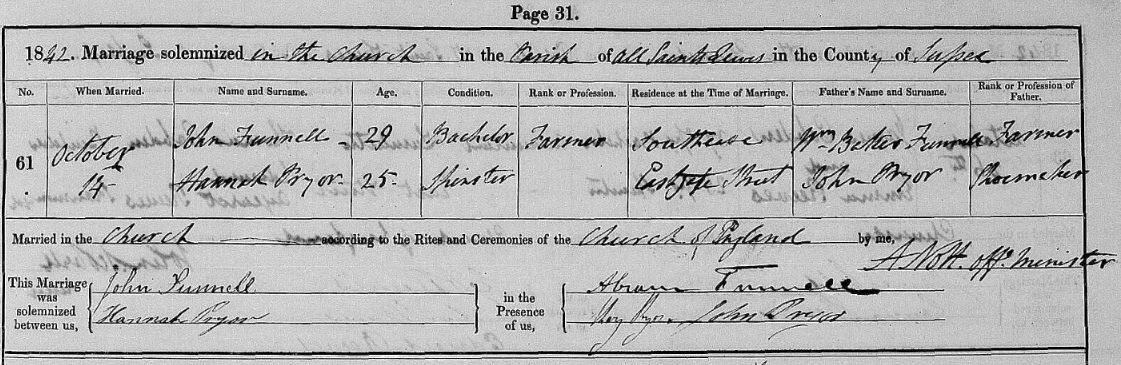 Page 31.
1842. Marriage solemnized in the Church in the Parish of All Saints Lewes in the County of Sussex
No. When Married. Name and Surname. Age. Condition. Rank or Profession. Residence at the Time of Marriage. Father's Name and Surname. Rank or Profession of Father.
61 October 14 John Funnell 29 Bachelor Farmer Southease Wm Bates Funnell Farmer
Hannah Pryor 25 Spinster Eastgate Street John Pryor Shoemaker
Married in the Church according to the Rites and Ceremonies of the Church of England by me,
A Nott. offg. Minister
This Marriage was solemnized between us,
John Funnell
Hannah Pryor
in the Presence of us,
Abram Funnell
Pryor John Pryor